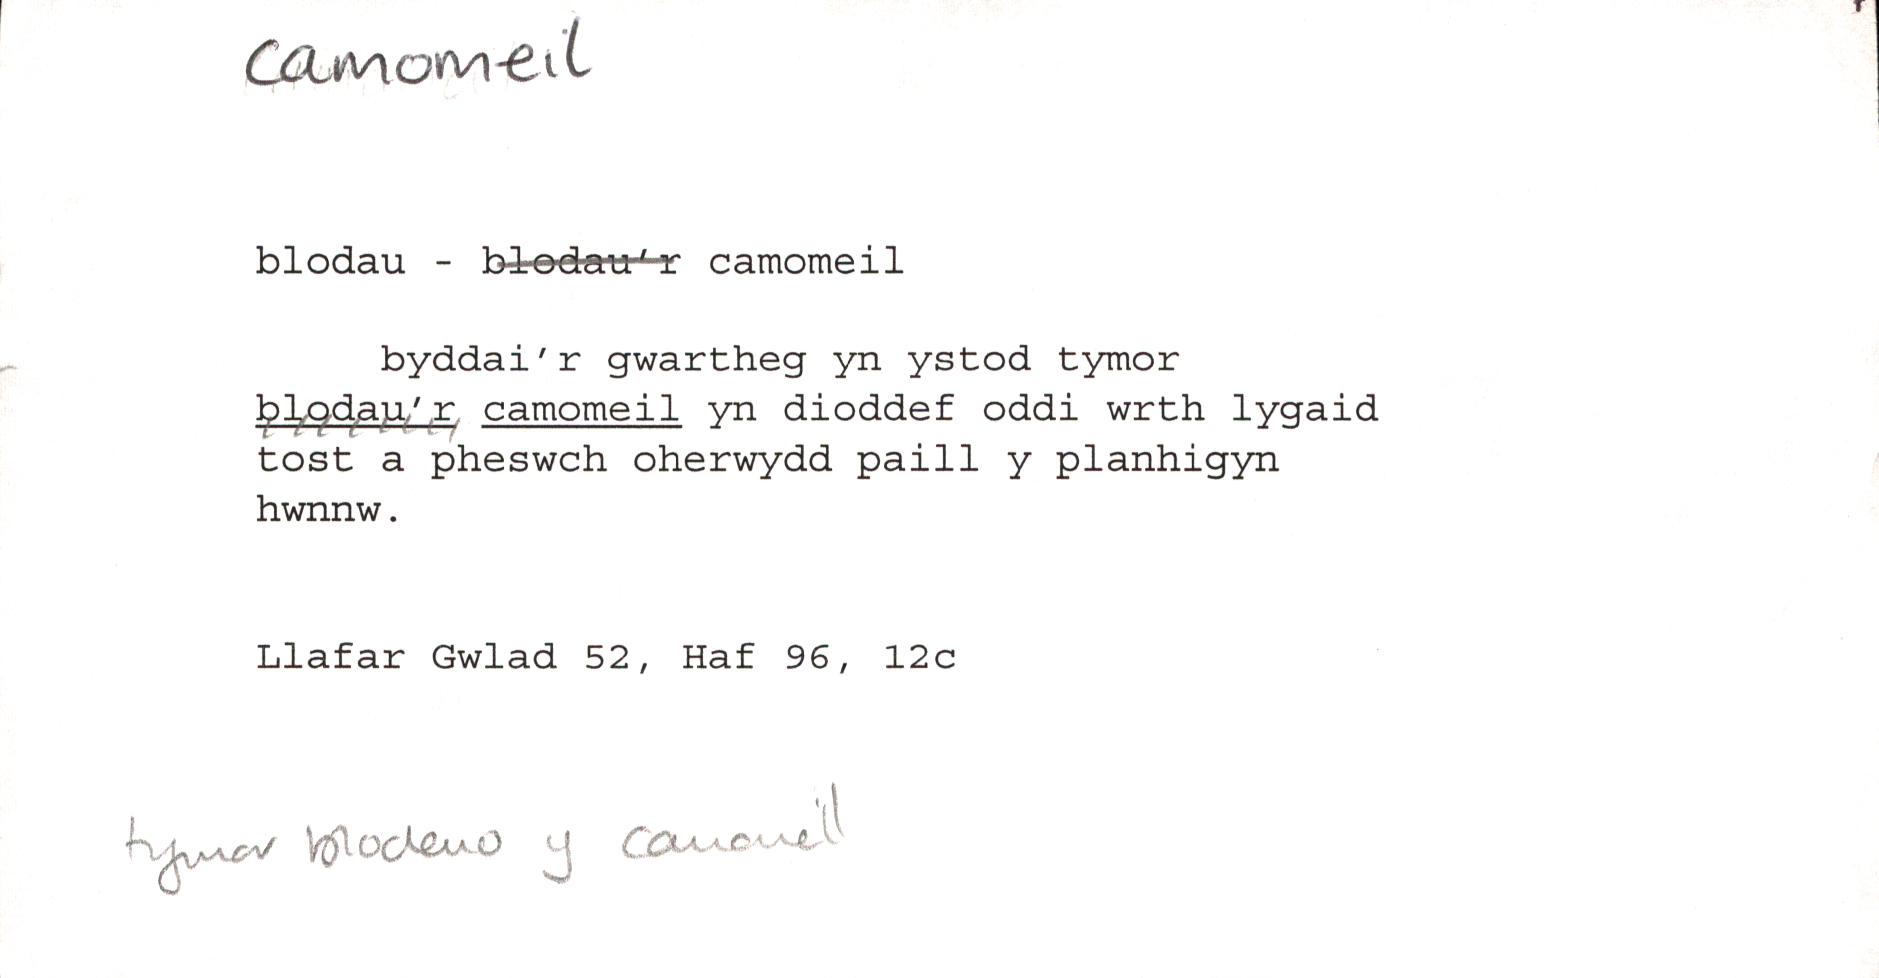 camomeil
blodau - blodau'r camomeil
byddai'r gwartheg yn ystod tymor
blodau'r camomeil yn dioddef oddi wrth lygaid
tost a pheswch oherwydd paill y planhigyn
hwnnw.
Llafar Gwlad 52, Haf 96, 12c
tymor blodeuo y camomeil